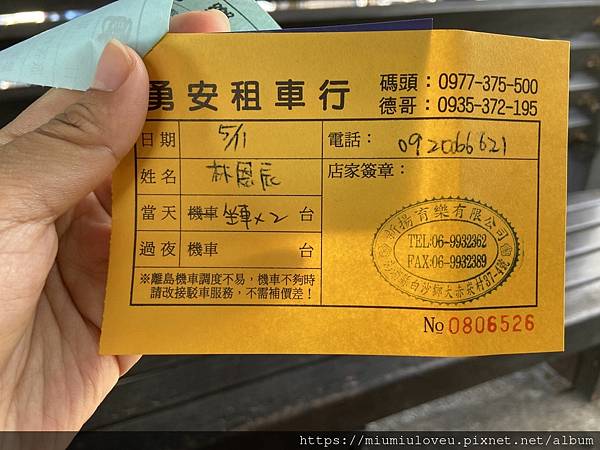 勇安租車行
碼頭：0977-375-500
德哥：0935-372-195
日期 5/11
電話： 092066621
姓名 林恩辰
店家簽章：
當天 機車 ×2 台
過夜 機車 台
※離島機車調度不易，機車不夠時
請改接駁車服務，不需補價差！
新揚育樂有限公司
TEL:06-9932362
FAX:06-9932389
白沙鄉大赤崁村97-4號
No 0806526
https://miumiuloveu.pixnet.net/album